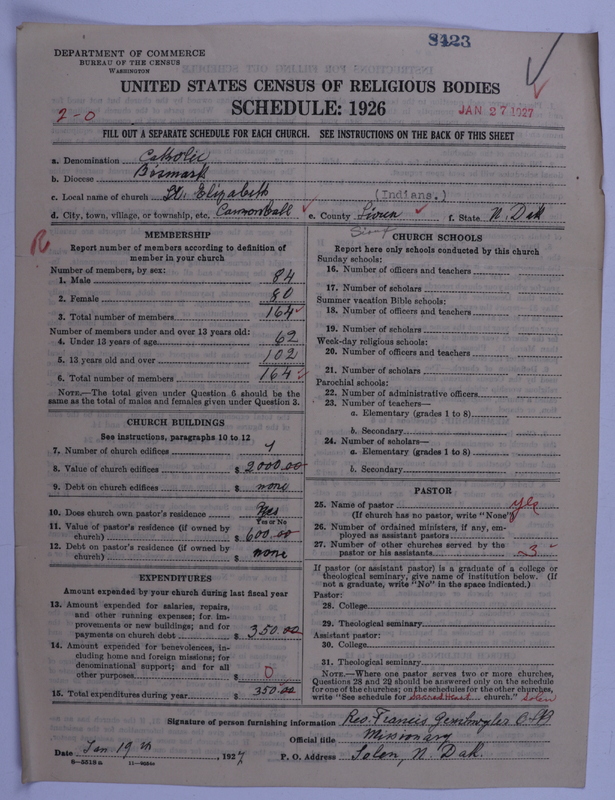 8423
DEPARTMENT OF COMMERCE
BUREAU OF THE CENSUS
WASHINGTON
UNITED STATES CENSUS OF RELIGIOUS BODIES
SCHEDULE: 1926
JAN 27 1927
2-0
FILL OUT A SEPARATE SCHEDULE FOR EACH CHURCH. SEE INSTRUCTIONS ON THE BACK OF THIS SHEET
a. Denomination Catholic
b. Diocese Bismark
c. Local name of church St. Elizabeth (Indians.)
d. City, town, village, or township, etc. Cannonball e. County Sioux f. State N. Dak
Sioux
R
MEMBERSHIP
Report number of members according to definition of
member in your church
Number of members, by sex:
1. Male 84
2. Female 80
3. Total number of members 164
Number of members under and over 13 years old:
4. Under 13 years of age 62
5. 13 years old and over 102
6. Total number of members 164
NOTE.—The total given under Question 6 should be
same as the total of males and females given under Question 3.
CHURCH BUILDINGS
See instructions, paragraphs 10 to 12
7. Number of church edifices 1
8. Value of church edifices $ 2000.00
9. Debt on church edifices $ none
10. Does church own pastor's residence Yes
Yes or No
11. Value of pastor's residence (if owned by
church) $ 600.00
12. Debt on pastor's residence (if owned by
church) $ none
EXPENDITURES
Amount expended by your church during last fiscal year
13. Amount expended for salaries, repairs,
and other running expenses; for im-
provements or new buildings; and for
payments on church debt $ 350.00
14. Amount expended for benevolences, in-
cluding home and foreign missions; for
denominational support; and for all
other purposes $ 0
15. Total expenditures during year $ 350.00
CHURCH SCHOOLS
Report here only schools conducted by this church
Sunday schools:
16. Number of officers and teachers
17. Number of scholars
Summer vacation Bible schools:
18. Number of officers and teachers
19. Number of scholars
Week-day religious schools:
20. Number of officers and teachers
21. Number of scholars
Parochial schools:
22. Number of administrative officers
23. Number of teachers—
a. Elementary (grades 1 to 8)
b. Secondary
24. Number of scholars—
a. Elementary (grades 1 to 8)
b. Secondary
PASTOR
25. Name of pastor yes
(If church has no pastor, write "None")
26. Number of ordained ministers, if any, em-
ployed as assistant pastors
27. Number of other churches served by the
pastor or his assistants 3
If pastor (or assistant pastor) is a graduate of a college or
theological seminary, give name of institution below. (If
not a graduate, write "No" in the space indicated.)
Pastor:
28. College
29. Theological seminary
Assistant pastor:
30. College
31. Theological seminary
NOTE.—Where one pastor serves two or more churches,
Questions 28 and 29 should be answered only on the schedule
for one of the churches; on the schedules for the other churches,
write "See schedule for Sacred Heart church." Solen
Signature of person furnishing information Rev. Francis
Official title Missionary
Date Jan 19th, 1927 P. O. Address Solen, N. Dak.
8—5518 a